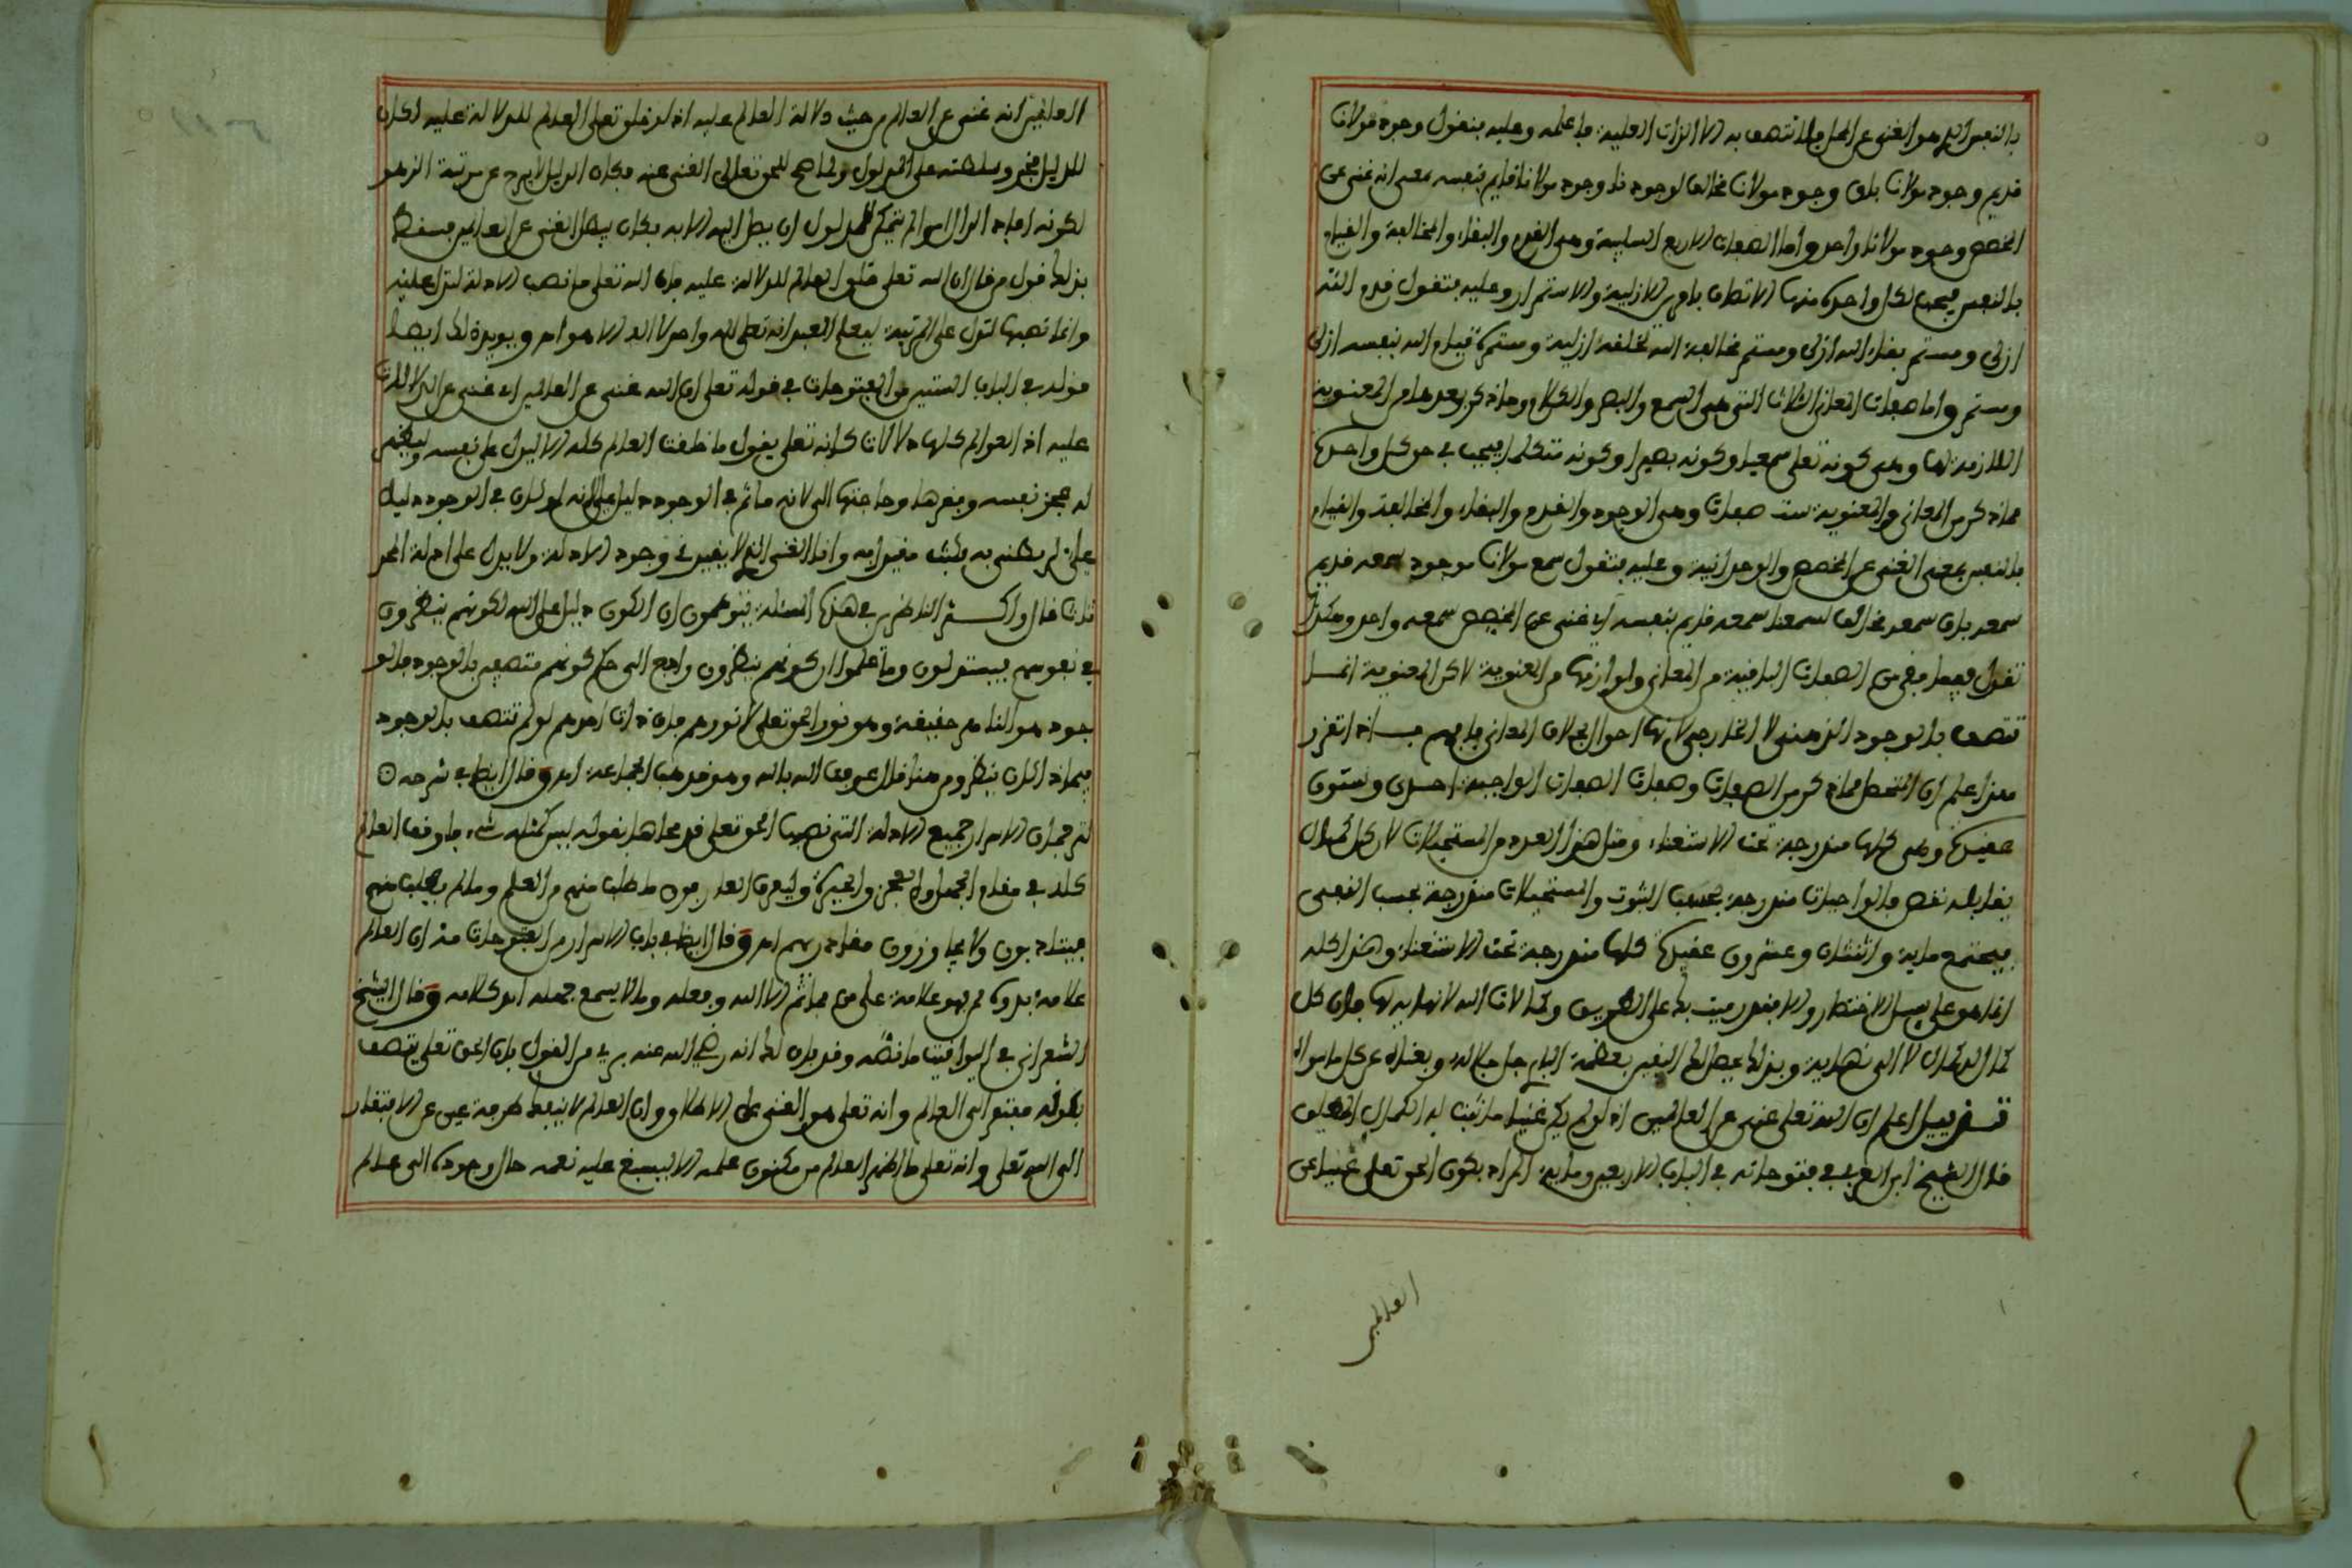 بالنفس الذي هو الغنى عن المحل فلا تتصف به الا الذات العلية فاعلمه وعليه فنقول وجود مولانا
قديم وجود مولانا باق وجود مولانا مخالف لوجودنا وجود مولانا قايم بنفسه بمعنى انه غني عن
المخصص وجود مولانا واحد واما الصفات الاربع السلبية وهي القدم والبقاء والمخالفة والقيام
بالنفس فيجب لكل واحدة منها الاتصاف بامرين الازلية والاستمرار وعليه فتقول قدم الله
ازلي ومستمر بقاء الله ازلي ومستمر مخالفة الله لخلقه ازلية ومستمرة قيام الله بنفسه ازلي
ومستمر واما صفات المعاني الثلاث التي هي السمع والبصر والكلام وما ذكر بعدها من المعنوية
اللازمة لها وهي كونه تعلى سميعا وكونه بصيرا وكونه متكلما فيجب في حق كل واحدة
مما ذكر من المعاني والمعنوية ست صفات وهي الوجود والقدم والبقاء والمخالفة والقيام
بالنفس بمعنى الغنى عن المخصص والوحدانية وعليه فتقول سمع مولانا موجود سمعه قديم
سمعه باق سمعه مخالف لسمعنا سمعه قايم بنفسه اي غني عن المخصص سمعه واحد وهكذا
تقول فيما بقي من الصفات الباقية من المعاني ولوازمها من المعنوية لاكن المعنوية انما
تتصف بالوجود الذهني لا الخارجي لانها احوال بخلاف المعاني فافهم فاذا تقرر
هذا اعلم ان المتحصل مما ذكر من الصفات وصفات الصفات الواجبة احدى وستون
عقيدة وهي كلها مندرجة تحت الاستغناء ومثل هذا العدد من المستحيلات لان كل كمال
يقابله نقص فالواجبات مندرجة بحسب الثبوت والمستحيلات مندرجة بحسب النفي
فيجتمع ماية واثنتان وعشرون عقيدة كلها مندرجة تحت الاستغناء وهذا كله
انما هو على سبيل الاختصار والا فقد رميت بك على الطريق وكمالات الله لا نهاية لها فان كل
كمال له كمال لا الى نهاية وبذلك يحصل لك اليقين بعظمة البارى جل جلاله وبغناه عن كل ما سواه
تذييل اعلم ان الله تعلى غني عن العالمين اذ لو لم يكن غنيا ما ثبت له الكمال المطلق
قال الشيخ ابن العربي في فتوحاته في الباب الاربعين وماية المراد بكون الحق تعلى غنيا عن
العالمين
العالمين انه غني عن العالم من حيث دلالة العالم عليه اذ لو خلق تعلى العالم للدلالة عليه لكان
للدليل فخر وسلطنة على المدلول ولما صح للحق تعالى الغنى عنه فكان الدليل لا يبرح عن مرتبة الزهو
لكونه افاد الدال امرا لم يتمكن للمدلول ان يصل اليه الا به فكان يبطل الغنى عن العالمين فسقط
بذلك قول من قال ان الله تعلى خلق العالم للدلالة عليه فان الله تعلى ما نصب الادلة لتدل عليه
وانما نصبها لتدل على المرتبة ليعلم العبد انه تعلى اله واحد لا اله الا هو اه ويويد ذلك ايضا
قوله في الباب الستين من الفتوحات في قوله تعلى ان الله غني عن العالمين اي غني عن الدلالات
عليه اذ العوالم كلها دلالات كانه تعلى يقول ما خلقت العالم كله الا ليدل على نفسه وليظهر
له عجز نفسه وفقرها وحاجتها الي لانه ما ثم في الوجود دليل علي لانه لو كان في الوجود دليل
علي لربطني به فكنت مقيدا به وانا الغني الذي لا يقيدني وجود الادلة ولا يدل على ادلة المحد
ثات قال واكثر الناظرين في هذه المسئلة يتوهمون ان الكون دليل على الله لكونهم ينظرون
في نفوسهم فيستدلون وما علموا ان كونهم ينظرون راجع الى حكم كونهم متصفين بالوجود فالو
جود هو الناظر حقيقة وهو نور الحق تعلى لا نورهم فان ذات احدهم لو لم تتصف بالوجود
فبماذا كان ينظر ومن هنا قال عرفت الله بالله وهو مذهب الجماعة اه وقال ايضا في شرحه
لترجمان الاشواق جميع الادلة التي نصبها الحق تعلى قد محاها بقوله ليس كمثله شيء فاوقف العالم
كله في مقام الجهل والعجز والحيرة وليعرف العارفون ما طلب منهم من العلم وما لم يطلب منهم
فيتادبون ولا يجاوزون مقاديرهم اه وقال ايضا في باب الاسرار من الفتوحات من ان العالم
علامة بدوه ممن هو علامة على من فما ثم الا الله وفعله وما لا يسع جهله اه كلامه وقال الشيخ
الشعراني في اليواقيت ما نصه وقد بان لك انه رضي الله عنه بري من القول بان الحق تعلى يتصف
بكونه مفتقر الى العالم وانه تعلى هو الغني على الاطلاق وان العالم لا ينفك طرفة عين عن الافتقار
الى الله تعلى وانه تعلى ما اظهر العالم من مكنون علمه الا ليسبغ عليه نعمه حال وجوده الى عالم